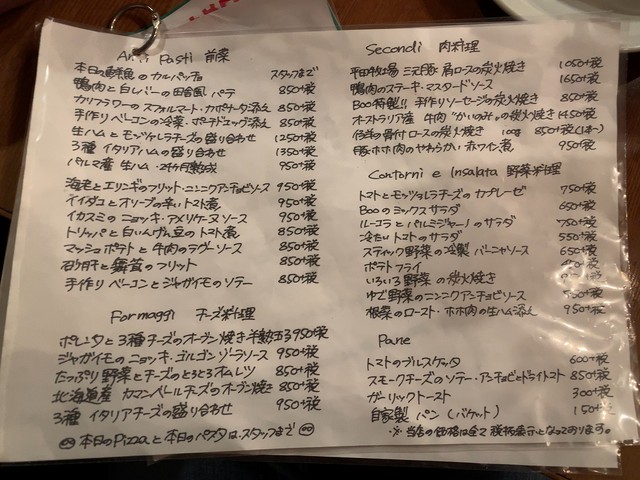 Anti Pasti 前菜
本日の鮮魚のカルパッチョ スタッフまで
鴨肉と白レバーの田舎風パテ 850+税
カリフラワーのスフォルマート・カポナータ添え 850+税
手作りベーコンの冷菜・ポーチドエッグ添え 850+税
生ハムとモッツァレラチーズの盛り合わせ 1250+税
3種 イタリアハムの盛り合わせ 1350+税
パルマ産 生ハム・24ヶ月熟成 950+税
海老とエリンギのフリット・ニンニクアンチョビソース 950+税
イイダコとオリーブの辛いトマト煮 950+税
イカスミのニョッキ・アメリケーヌソース 950+税
トリッパと白いんげん豆のトマト煮 850+税
マッシュポテトと牛肉のラグーソース 850+税
砂肝と舞茸のフリット 850+税
手作りベーコンとジャガイモのソテー 850+税
Formaggi チーズ料理
ポレンタと3種チーズのオーブン焼き・半熟玉子 950+税
ジャガイモのニョッキ・ゴルゴンゾーラソース 950+税
たっぷり野菜とチーズのとろとろオムレツ 850+税
北海道産 カマンベールチーズのオーブン焼き 850+税
3種 イタリアチーズの盛り合わせ 950+税
本日のPizzaと本日のパスタは・スタッフまで
Secondi 肉料理
平田牧場 三元豚 肩ロースの炭火焼き 1050+税
鴨肉のステーキ・マスタードソース 1650+税
Boo特製!! 手作りソーセージの炭火焼き 850+税
オーストラリア産 牛肉 "かいのみ"の炭火焼き 1450+税
骨付ロースの炭火焼き 100g 850+税
豚ホホ肉のやわらかい赤ワイン煮 950+税
Contorni e Insalata 野菜料理
トマトとモッツァレラチーズのカプレーゼ 750+税
Booのミックスサラダ 650+税
ルーコラとパルミジャーノのサラダ 750+税
冷たいトマトのサラダ 550+税
スティック野菜の冷製 バーニャソース 650+税
ポテトフライ
いろいろ野菜の炭火焼き
ゆで野菜のニンニクアンチョビソース
根菜のロースト・ホホ肉の生ハム添え 950+税
Pane
トマトのブルスケッタ 600+税
スモークチーズのソテー・アンチョビとドライトマト 850+税
ガーリックトースト 300+税
自家製 パン (バケット) 150+税
※ 当店の価格は全て税抜表示となっております。